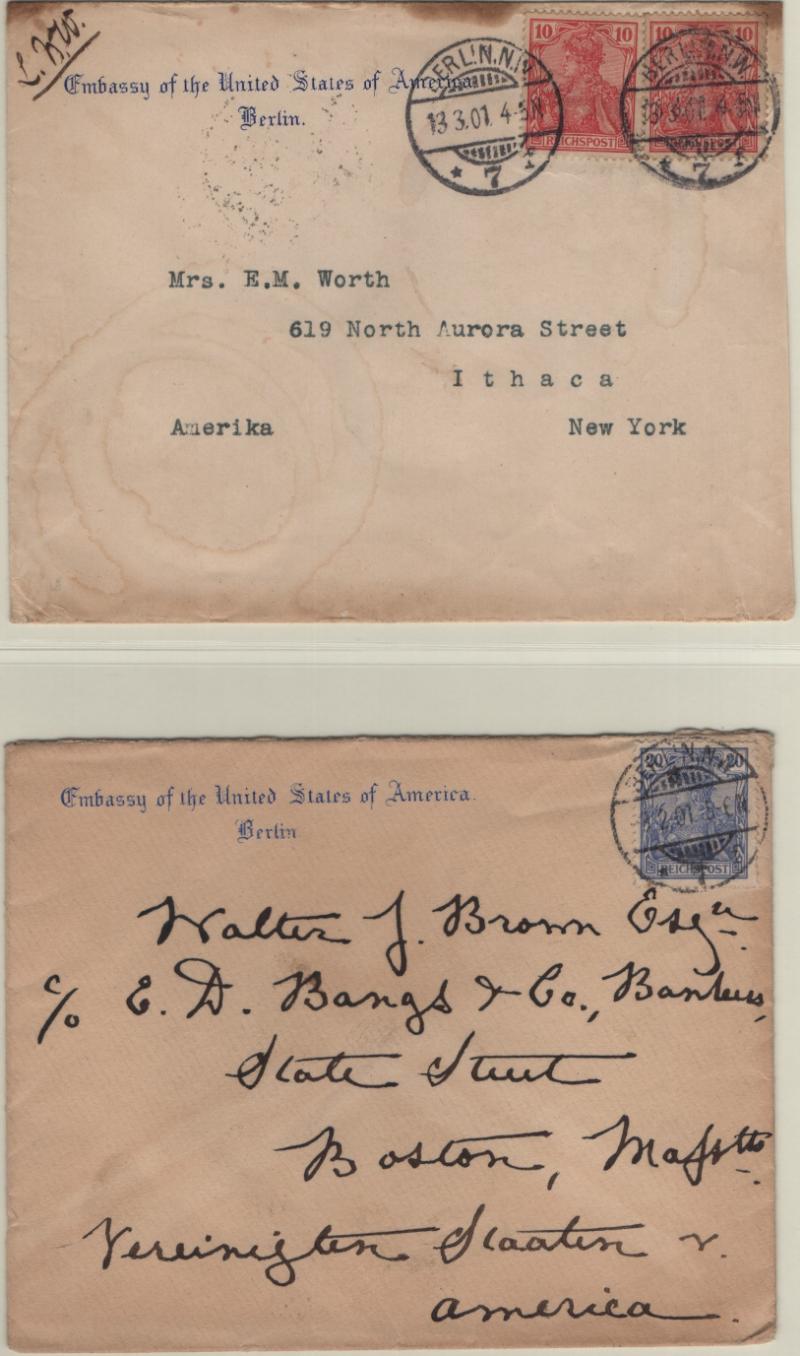 Embassy of the United States of America
Berlin.
10 10
REICHSPOST
BERLIN.N.W.
13.3.01. 4-5N
* 7 f
BERLIN.N.W.
13.3.01. 4-5N
* 7 f
Mrs. E.M. Worth
619 North Aurora Street
Ithaca
Amerika New York
Embassy of the United States of America.
Berlin
20 20
REICHSPOST
BERLIN.N.W.
2.01.
Walter J. Brown Esqre.
c/o E. D. Bangs & Co., Bankers,
State Street
Boston, Masstts.
Vereinigten Staaten v.
America.